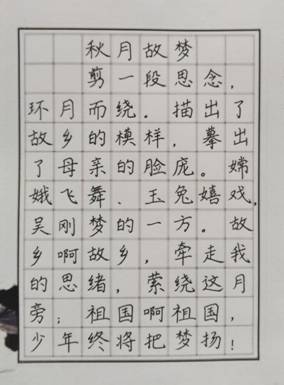 秋月故梦
剪一段思念，
环月而绕．描出了
故乡的模样，摹出
了母亲的脸庞。嫦
娥飞舞．玉兔嬉戏，
吴刚梦的一方。故
乡啊故乡，牵走我
的思绪，萦绕这月
旁；祖国啊祖国，
少年终将把梦扬！